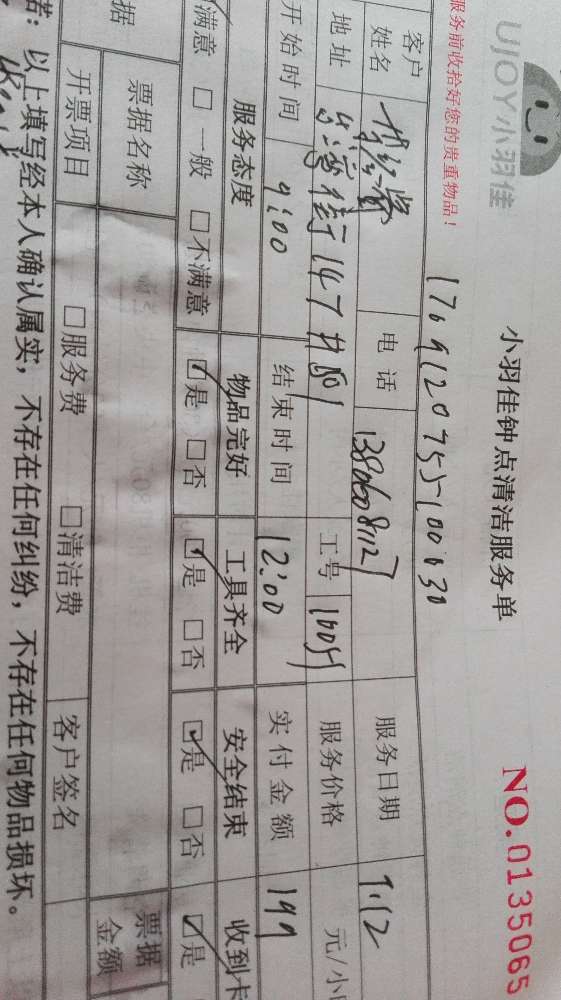 UJOY小羽佳
小羽佳钟点清洁服务单
NO.0135065
服务前收拾好您的贵重物品!
客户姓名
电话
服务日期 7.12
地址 台湾街147#801
工号 16059
服务价格 元/小
开始时间 9:00
结束时间 12:00
实付金额 199
服务态度 物品完好 工具齐全 安全结束 收到卡
满意 □一般 □不满意 ☑是 □否 ☑是 □否 ☑是 □否 ☑是
据 票据名称 票据金额
开票项目 □服务费 □清洁费 客户签名
诺:以上填写经本人确认属实,不存在任何纠纷,不存在任何物品损坏。